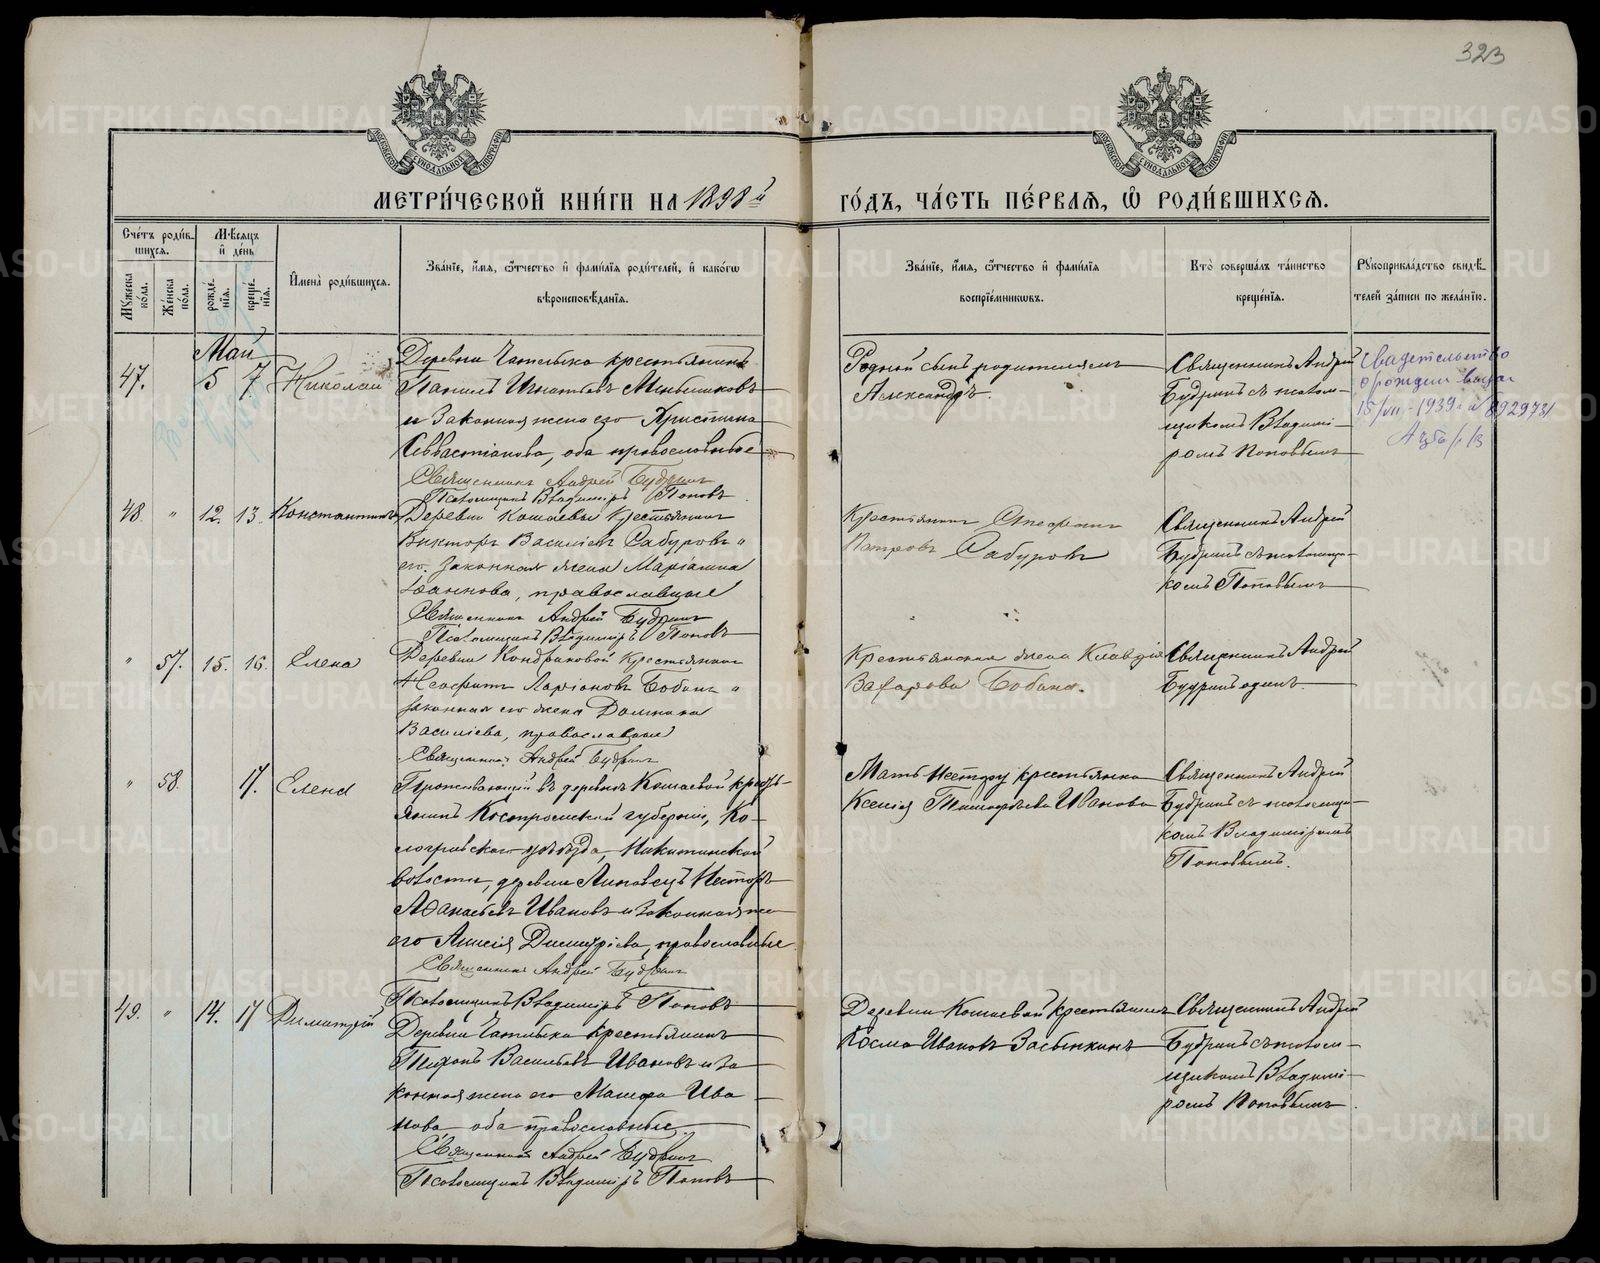 323
МЕТРИ́ЧЕСКОЙ КНИ́ГИ НА 1898й
ГО́ДЪ, ЧА́СТЬ ПЕ́РВАѦ, Ѽ РОДИ́ВШИХСѦ.
Сче́тъ роди́в-
шихсѧ.
Мѣ́сѧцъ
и҆ де́нь
Мꙋ́жеска
по́ла.
Же́нска
по́ла.
рожде́-
нїѧ.
креще́-
нїѧ.
И҆мена̀ роди́вшихсѧ.
Зва́нїе, и҆́мѧ, ѻ҆́тчество и҆ фами́лїѧ роди́телей, и҆ како́гѡ
вѣроисповѣ́данїѧ.
Зва́нїе, и҆́мѧ, ѻ҆́тчество и҆ фами́лїѧ
воспрїе́мникѡвъ.
Кто̀ соверша́лъ та́инство
креще́нїѧ.
Рꙋкоприкла́дство свидѣ́-
телей за́писи по жела́нїю.
Май
47.
5
7
Николай
Деревни Чатлыка крестьянинъ
Игнатьевъ Меньшиковъ
и законная жена его Христина
Севвастіанова, оба православные
Священникъ Андрей Будринъ
Псаломщикъ Владиміръ Поповъ
Родной сынъ родителямъ
Александръ.
Священникъ Андрей
Будринъ съ псалом-
щикомъ Владимі-
ромъ Поповымъ
Свидетельство
о рождении выдан
15/VII-1939 г
48.
"
12.
13.
Константинъ
Деревни Кошаевы крестьянинъ
Викторъ Василіевъ Сабуровъ и
его законная жена Маріамна
Іоаннова, православные
Священникъ Андрей Будринъ
Псаломщикъ Владиміръ Поповъ
Крестьянинъ
Петровъ Сабуровъ
Священникъ Андрей
Будринъ съ псаломщи-
комъ Поповымъ
"
57.
15.
16.
Елена
Деревни Кондраковой крестьянинъ
Неофитъ Ларіоновъ Бобинъ и
законная его жена Домника
Василіева, православные
Священникъ Андрей Будринъ
Крестьянская жена Клавдія
Захарова Бобина.
Священникъ Андрей
Будринъ одинъ.
"
58.
17.
Елена
Проживающій въ деревнѣ Кошаевой кресть-
янинъ Костромской губерніи, Ко-
логривскаго уѣзда, Никитинской
волости, деревни Липовецъ Несторъ
Аѳанасьевъ Ивановъ и законная же-
его Анисія Димитріева, православные
Священникъ Андрей Будринъ
Псаломщикъ Владиміръ Поповъ
Мать Нестору крестьянка
Ксенія Тимоѳѣева Иванова
Священникъ Андрей
Будринъ съ псаломщи-
комъ Владиміромъ
Поповымъ.
49.
"
14.
17
Димитрій
Деревни Чатлыка крестьянинъ
Тихонъ Васильевъ Ивановъ и за
конная жена его Ива
нова оба православные.
Священникъ Андрей Будринъ
Псаломщикъ Владиміръ Поповъ
Деревни Кошаевой крестьянинъ
Косма Ивановъ Засыпкинъ
Священникъ Андрей
Будринъ съ псалом-
щикомъ Владимі-
ромъ Поповымъ.
METRIKI.GASO-URAL.RU